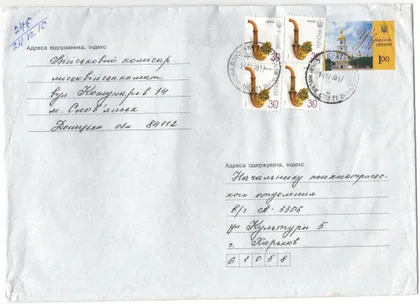 246
24.12.10
Адреса відправника, індекс
Військовий комісар
міськвійськкомат
вул Комунарів 14
м. Слов'янськ
Донецька обл 84112
30
30
30
30
1.00
Адреса одержувача, індекс
Начальнику психиатричес-
кого отделения
в/ч А-3306
ул Культуры 5
г. Харьков
61058